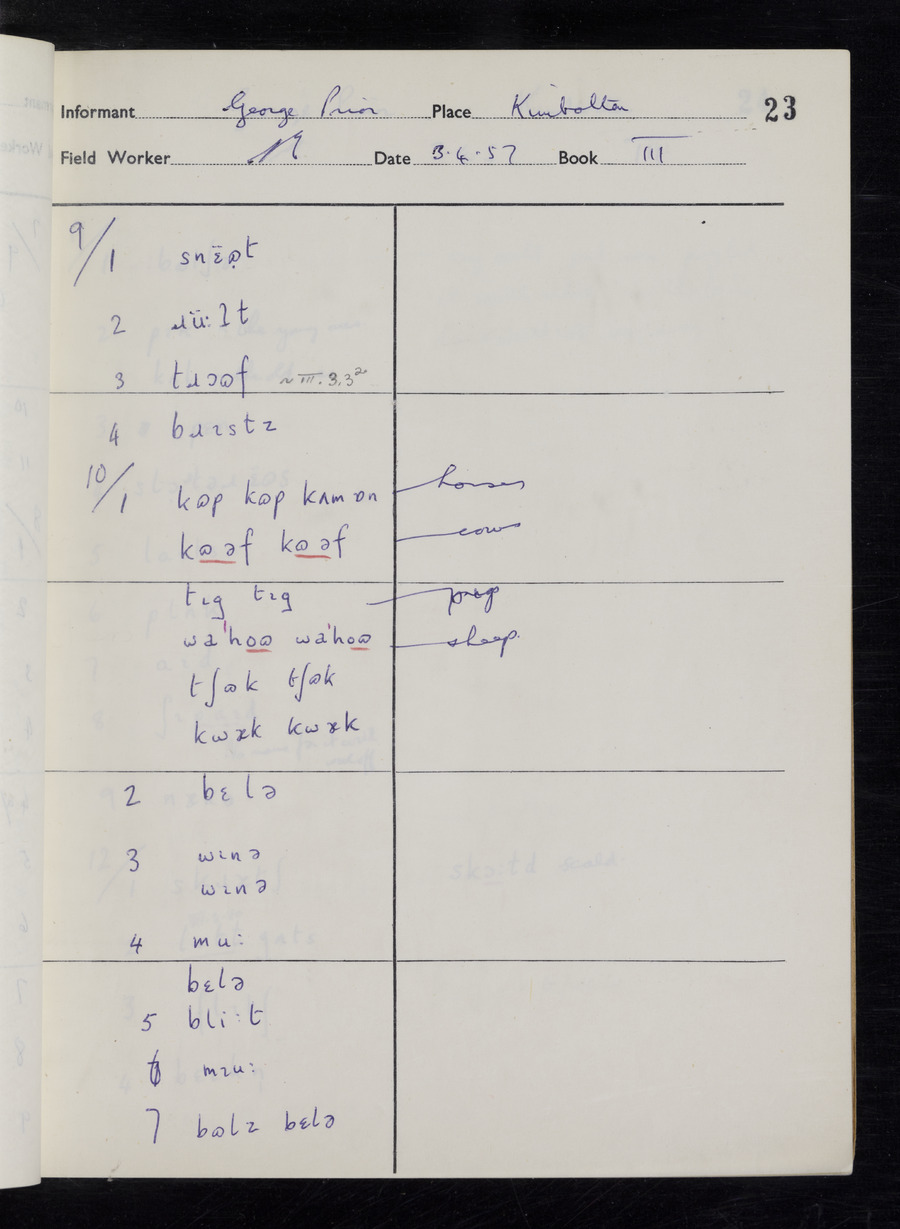 Informant George Prior Place Kimbolton 23
Field Worker Date 3.4.57 Book III
9/1 snɛ̈ɷ̣t
2 ɹɪ̈:lt
3 tɹɔɷf ~ III.3.3²
4 bɹɪstz
10/1 kɷp kɷp kʌmɒn horses
kɷəf kɷəf cows
tɪg tɪg pig
wə'hoɷ wə'hoɷ sheep
tʃɷk tʃɷk
kwɤk kwɤk
2 bɛlə
3 wɪnə
wɪnə
4 mu:
bɛlə
5 bli:t
6 mɪu:
7 bɷlz bɛlə